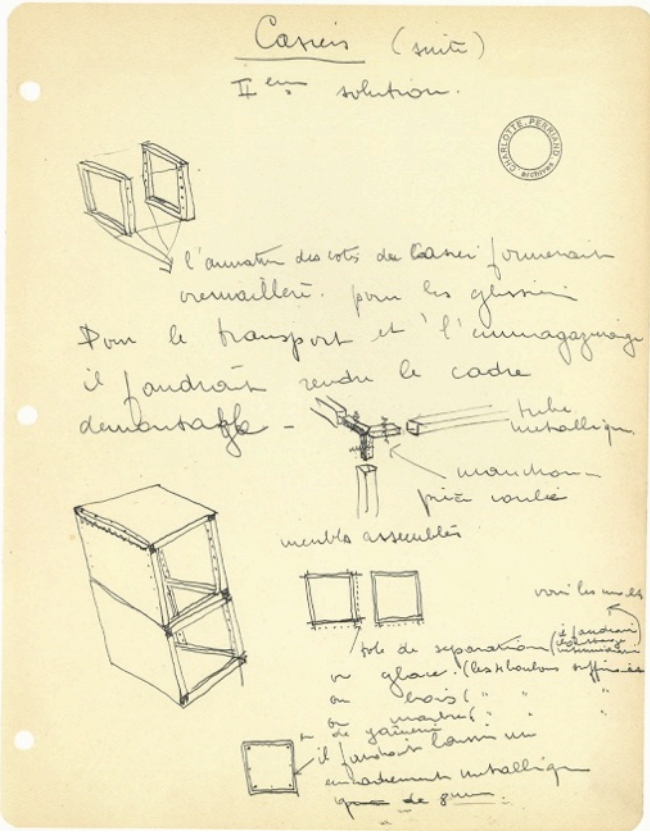 Casiers (suite)
II eme solution.
CHARLOTTE PERRIAND
archives
l'armature des cotés des Casiers formerait
cremaillere. pour les glissières
Pour le transport et l'emmagazinage
il faudrait rendre le cadre
demontable -
tube
metallique
manchon
pièce coulée
meubles assemblés
voir les
tole de separation (il faudrait
ou glace. (les boulons
ou bois ( " "
ou marbre ( " " "
ou de gainerie
il faudrait laisser un
encadrement metallique
de 8 mm.